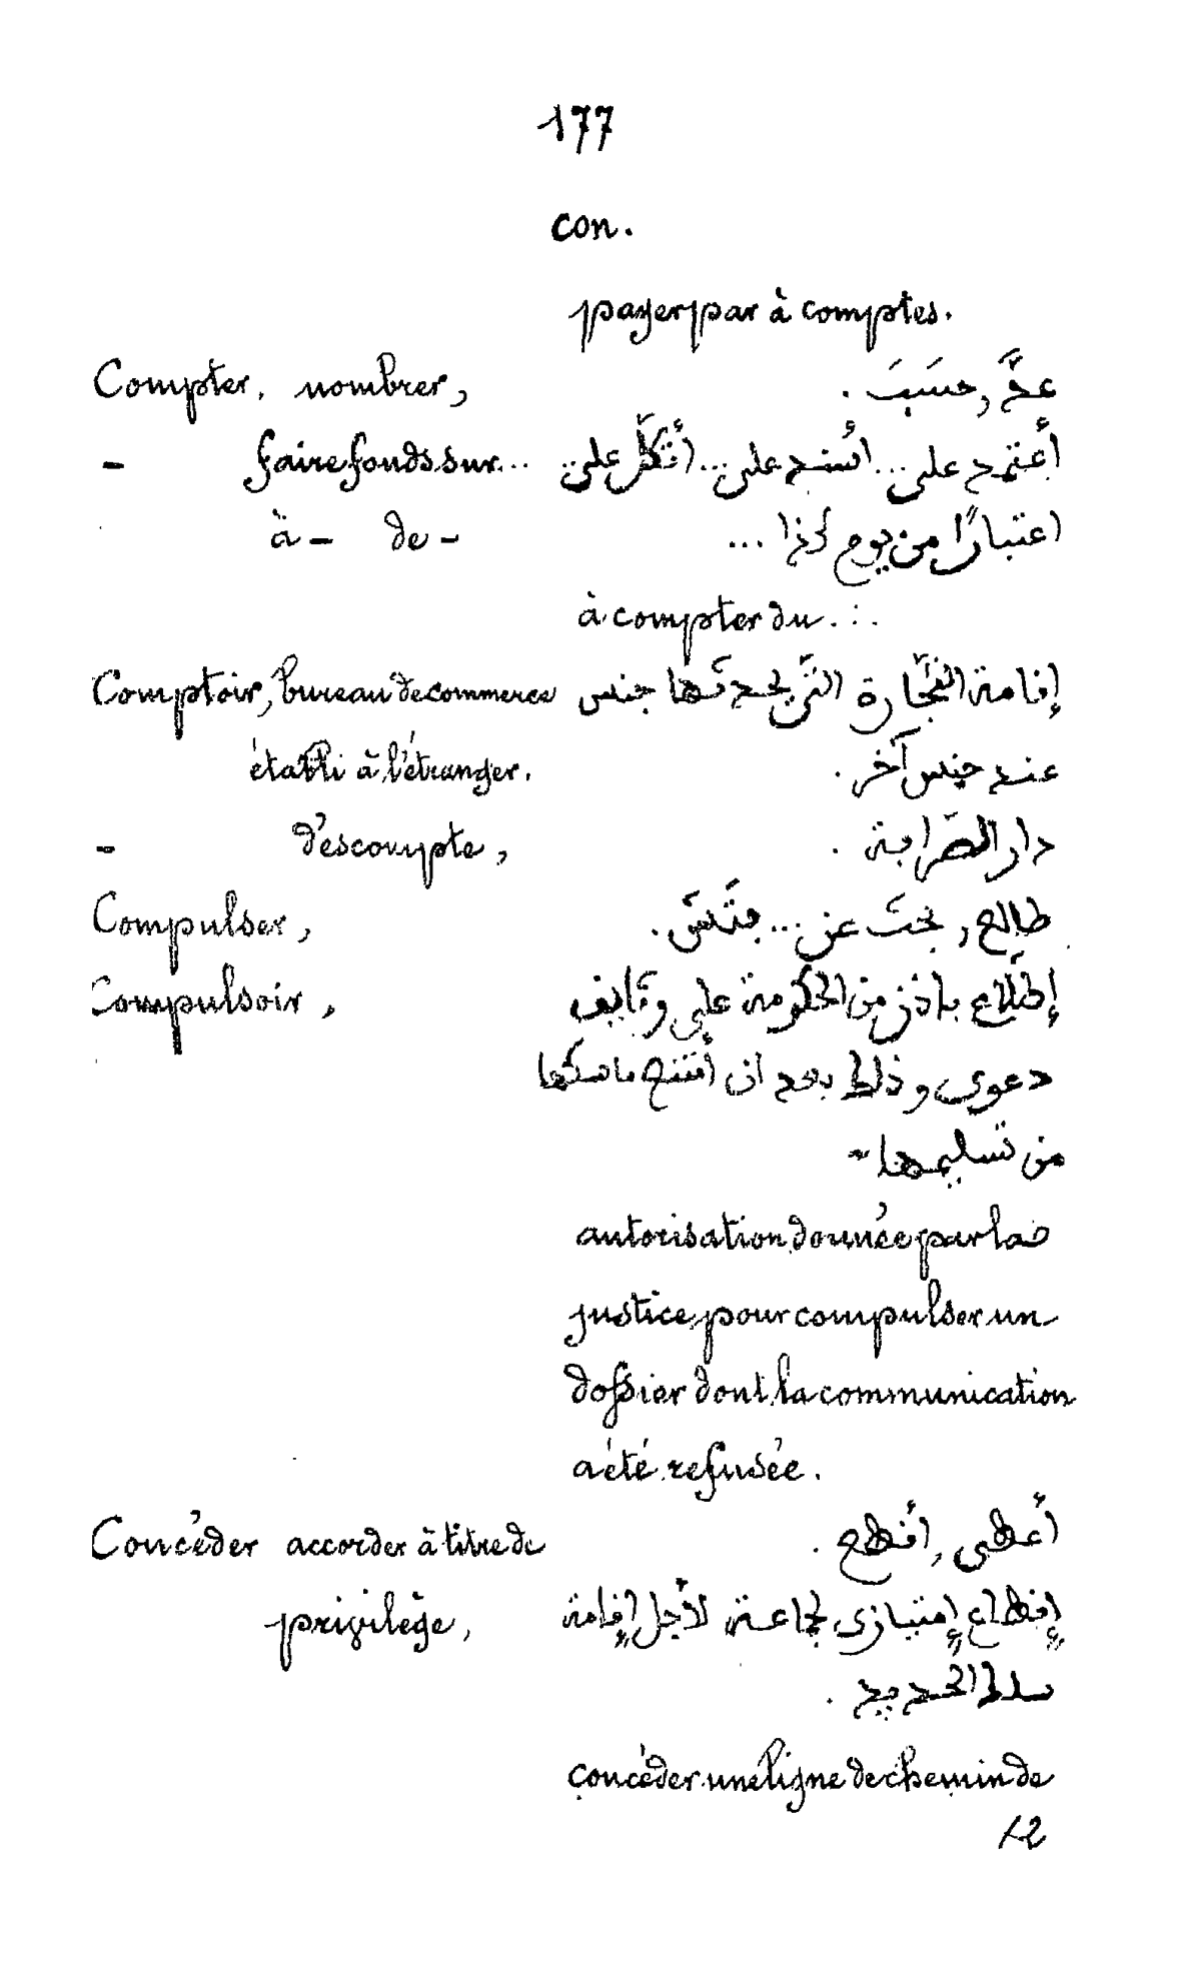 177
con.
payer par à comptes.
Compter, nombrer, عدَّ, حسَبَ .
- faire fonds sur... أعتمد على... أسند على... أتكّل على...
à - de - اعتبارًا من يوم كذا ...
à compter du ...
Comptoir, bureau de commerce إقامة التجّارة التي يحدثها جنس
établi à l'étranger. عند جنس آخر .
- d'escompte, دار الصّرافة .
Compulser, طالع, بحث عن... فتّش .
Compulsoir, إطّلاع بإذن من الحكومة على وثايق
دعوى وذلك بعد ان أمتنع ماسكها
من تسليمها
autorisation donnée par la
justice pour compulser un
dossier dont la communication
a été refusée.
Concéder accorder à titre de أعطى, أقطع .
privilège, إقطاع إمتيازى لجماعة لأجل إقامة
سكك الحديد .
concéder une ligne de chemin de
12